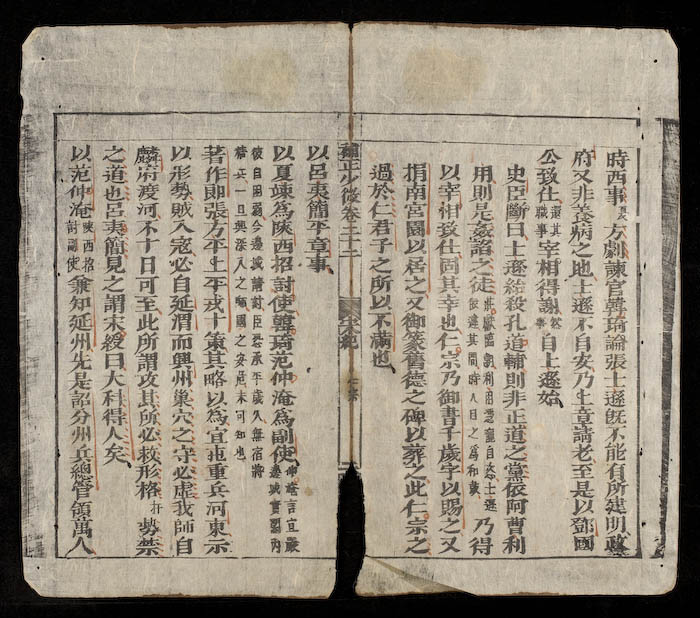 時西事方劇諫官韓琦論張士遜旣不能有所建明政
府又非養病之地士遜不自安乃上章請老至是以鄧國
公致仕還其職事宰相得謝自士遜始
史臣斷曰士遜結殺孔道輔則非正道之黨依阿曹利
用則是姦諂之徒乃得
以宰相致仕固其幸也仁宗乃御書千歲字以賜之又
捐南宮園以居之又御篆舊德之碑以葬之此仁宗之
過於仁君子之所以不滿也
少微卷二十二 宋紀 仁宗
以呂夷簡平章事
以夏竦爲陝西招討使韓琦范仲淹爲副使
彼自困弱今邊城請討臣恐承平歲久無宿將
精兵一旦興深入之師國之安危未可知也
著作郎張方平上平戎十策其略以爲宜屯重兵河東示
以形勢賊入寇必自延渭而興州巢穴之守必虛我師自
麟府渡河不十日可至此所謂攻其所必救形格勢禁
之道也呂夷簡見之謂宋綬曰大科得人矣
以范仲淹陝西招討副使兼知延州先是詔分州兵總管領萬人